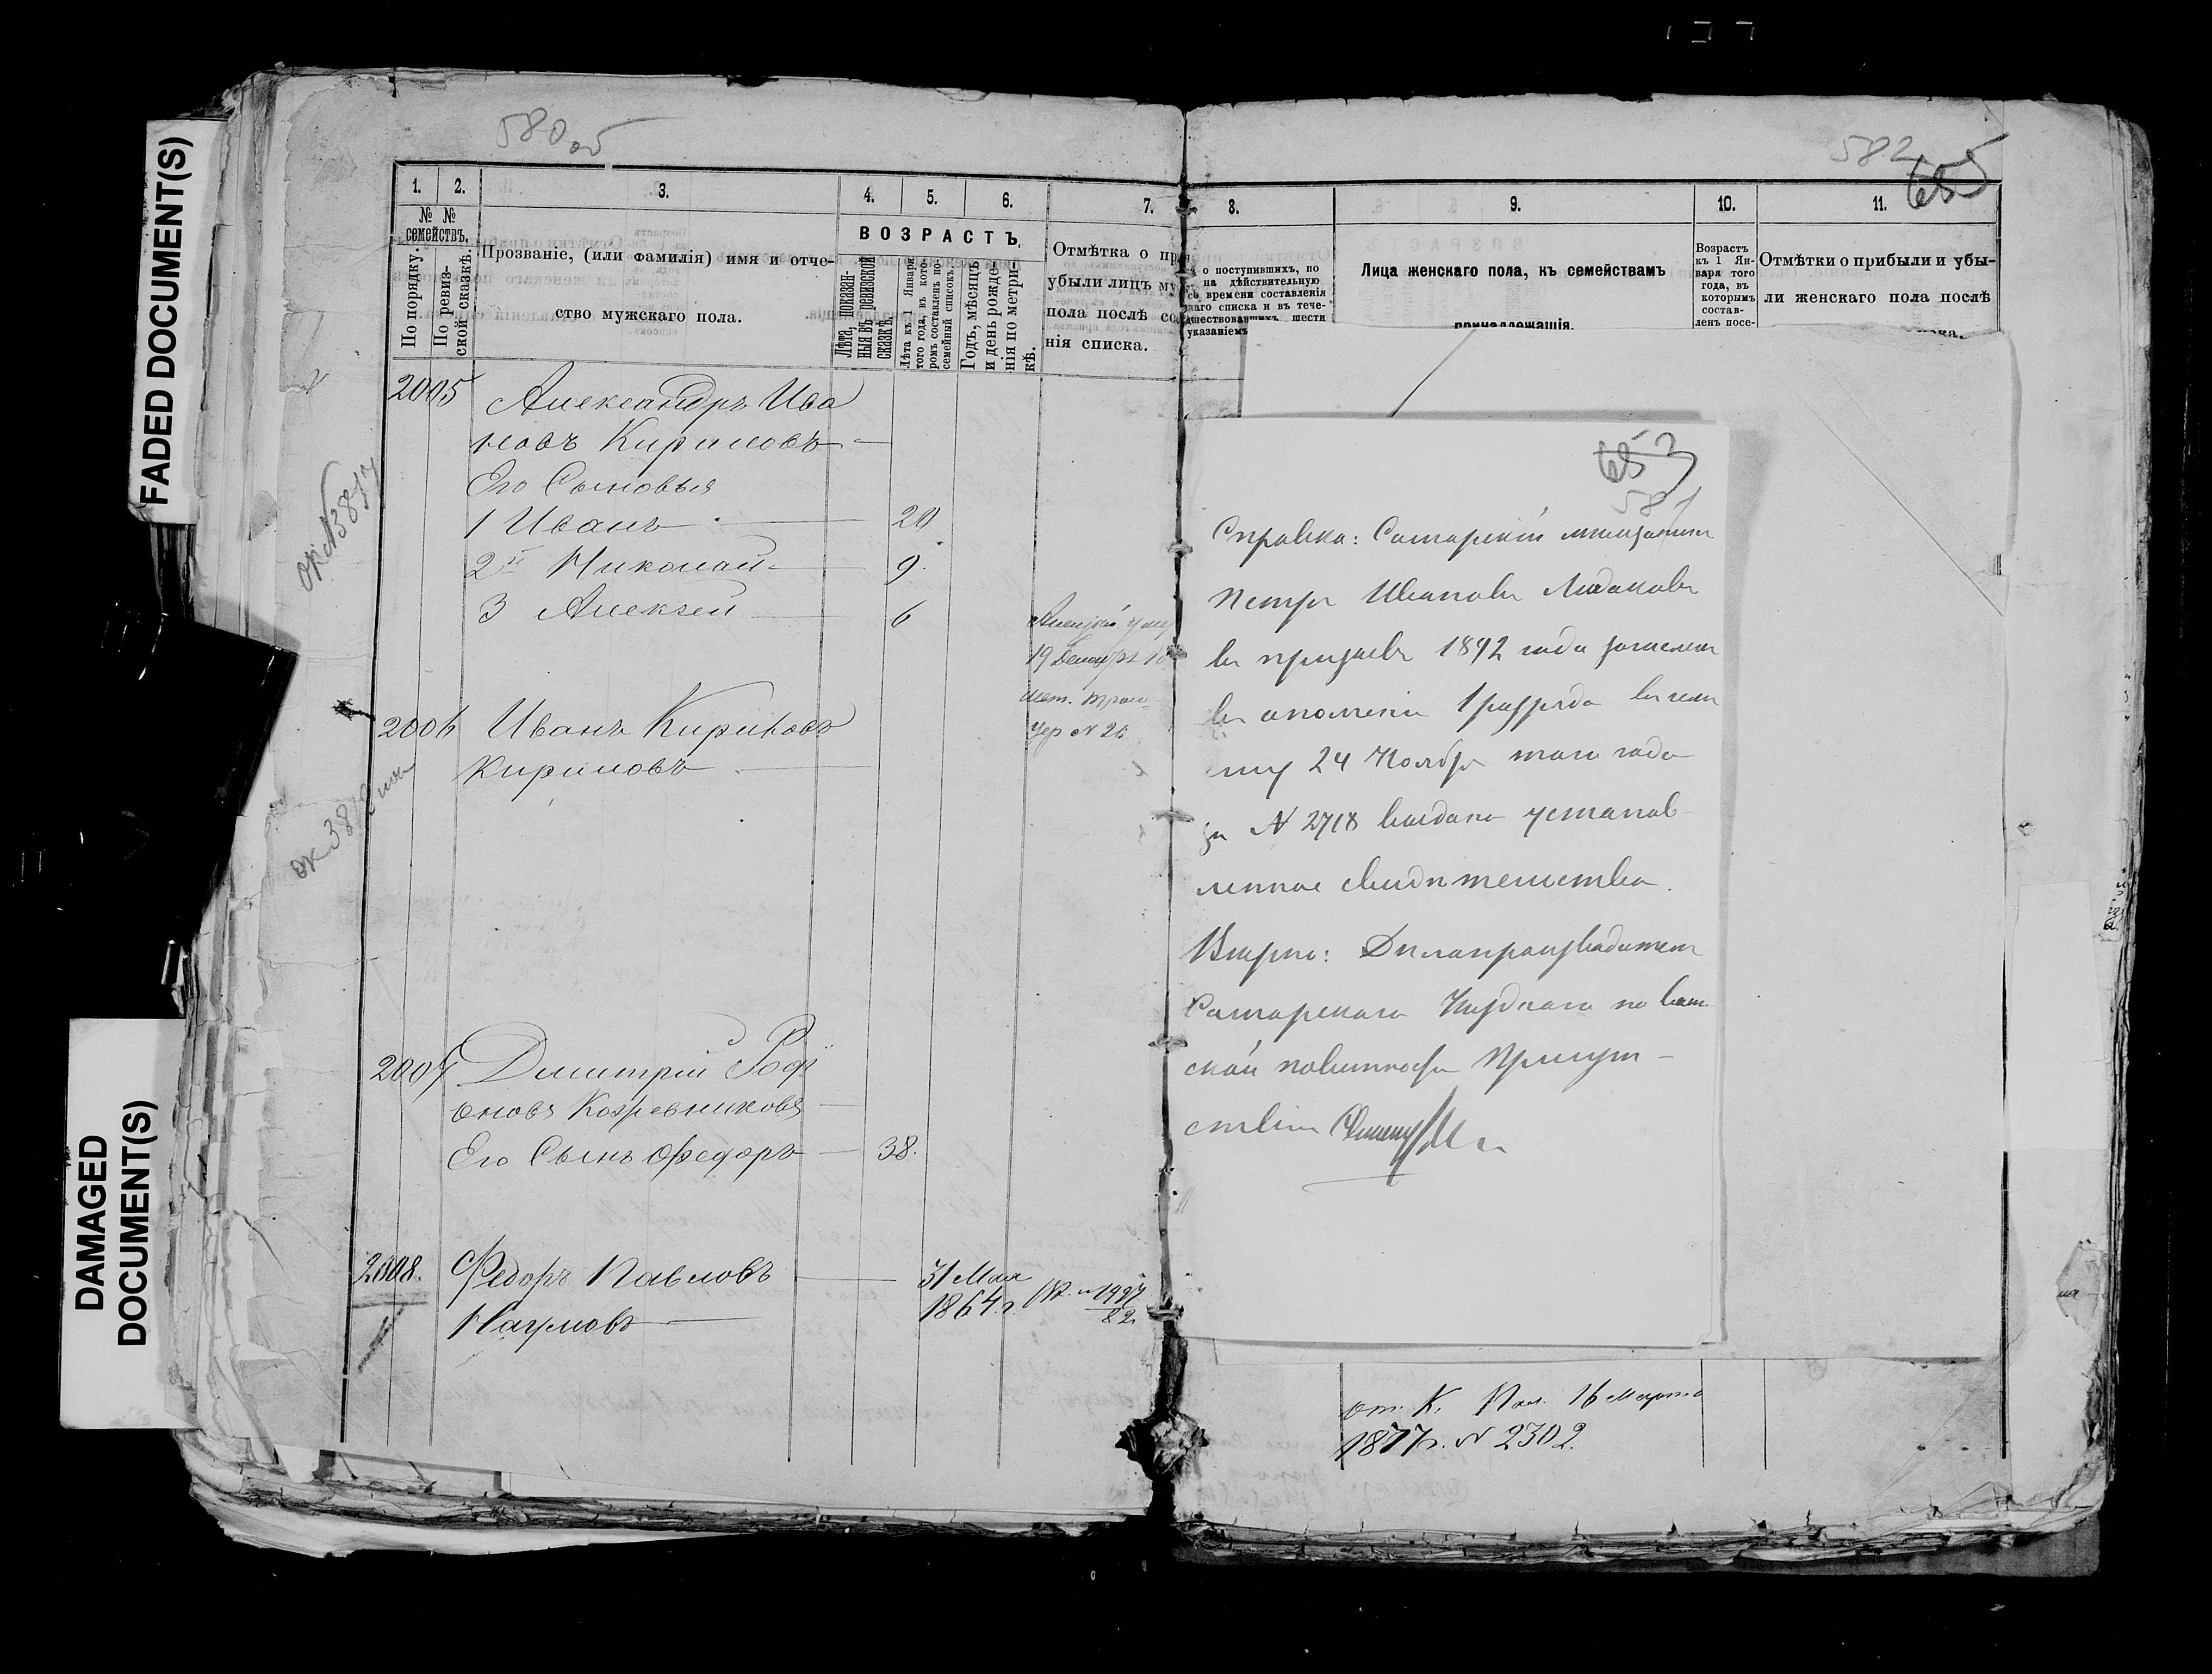 FADED DOCUMENT(S)
DAMAGED
DOCUMENT(S)
580 об
1. 2. 3. 4. 5. 6. 7.
№ №
семействъ.
По порядку.
По ревиз-
ской сказкѣ.
Прозваніе, (или фамилія) имя и отче-
ство мужскаго пола.
ВОЗРАСТЪ,
Лѣта, показан-
ныя въ ревизской
сказкѣ.
Лѣта къ 1 Января
того года, въ кото-
ромъ составленъ по-
семейный списокъ.
Годъ, мѣсяцъ
и день рожде-
нія по метри-
кѣ.
Отмѣтка о пр
убыли лицъ му
пола послѣ со
нія списка.
2005 Александръ Ива
новъ Кириловъ
Его Сыновья
1 Иванъ 20
2й Николай 9.
3 Алексей 6
Алексѣй умер
19 Декабря 18
мет. Троиц
Цер № 26
2006 Иванъ Кириловъ
Кириловъ
2007 Дмитрій Родi
оновъ Кожевниковъ
Его Сынъ Федоръ 38.
2008. Федоръ Павловъ 31 Мая
1864 г.
Наумовъ
82
582
655
8. 9. 10. 11.
о поступившихъ, по
на дѣйствительную
со времени составленія
наго списка и въ тече-
дшествовавшихъ шести
указаніемъ
Лица женскаго пола, къ семействамъ
принадлежащія.
Возрастъ
къ 1 Ян-
варя того
года, въ
которымъ
состав-
ленъ посе-
Отмѣтки о прибыли и убы-
ли женскаго пола послѣ
653
581
Справка: Самарскій мещанинъ
Петръ Ивановъ
въ призывѣ 1892 года зачисленъ
въ ополченіе 1 разряда въ чемъ
ему 24 Ноября того года
за № 2718 выдано установ-
ленное свидѣтельство.
Вѣрно: Дѣлопроизводитель
Самарскаго Уѣзднаго по воин
ской повинности Присут-
ствія
от. К. Пал. 16 Марта
1877 г. № 2302.